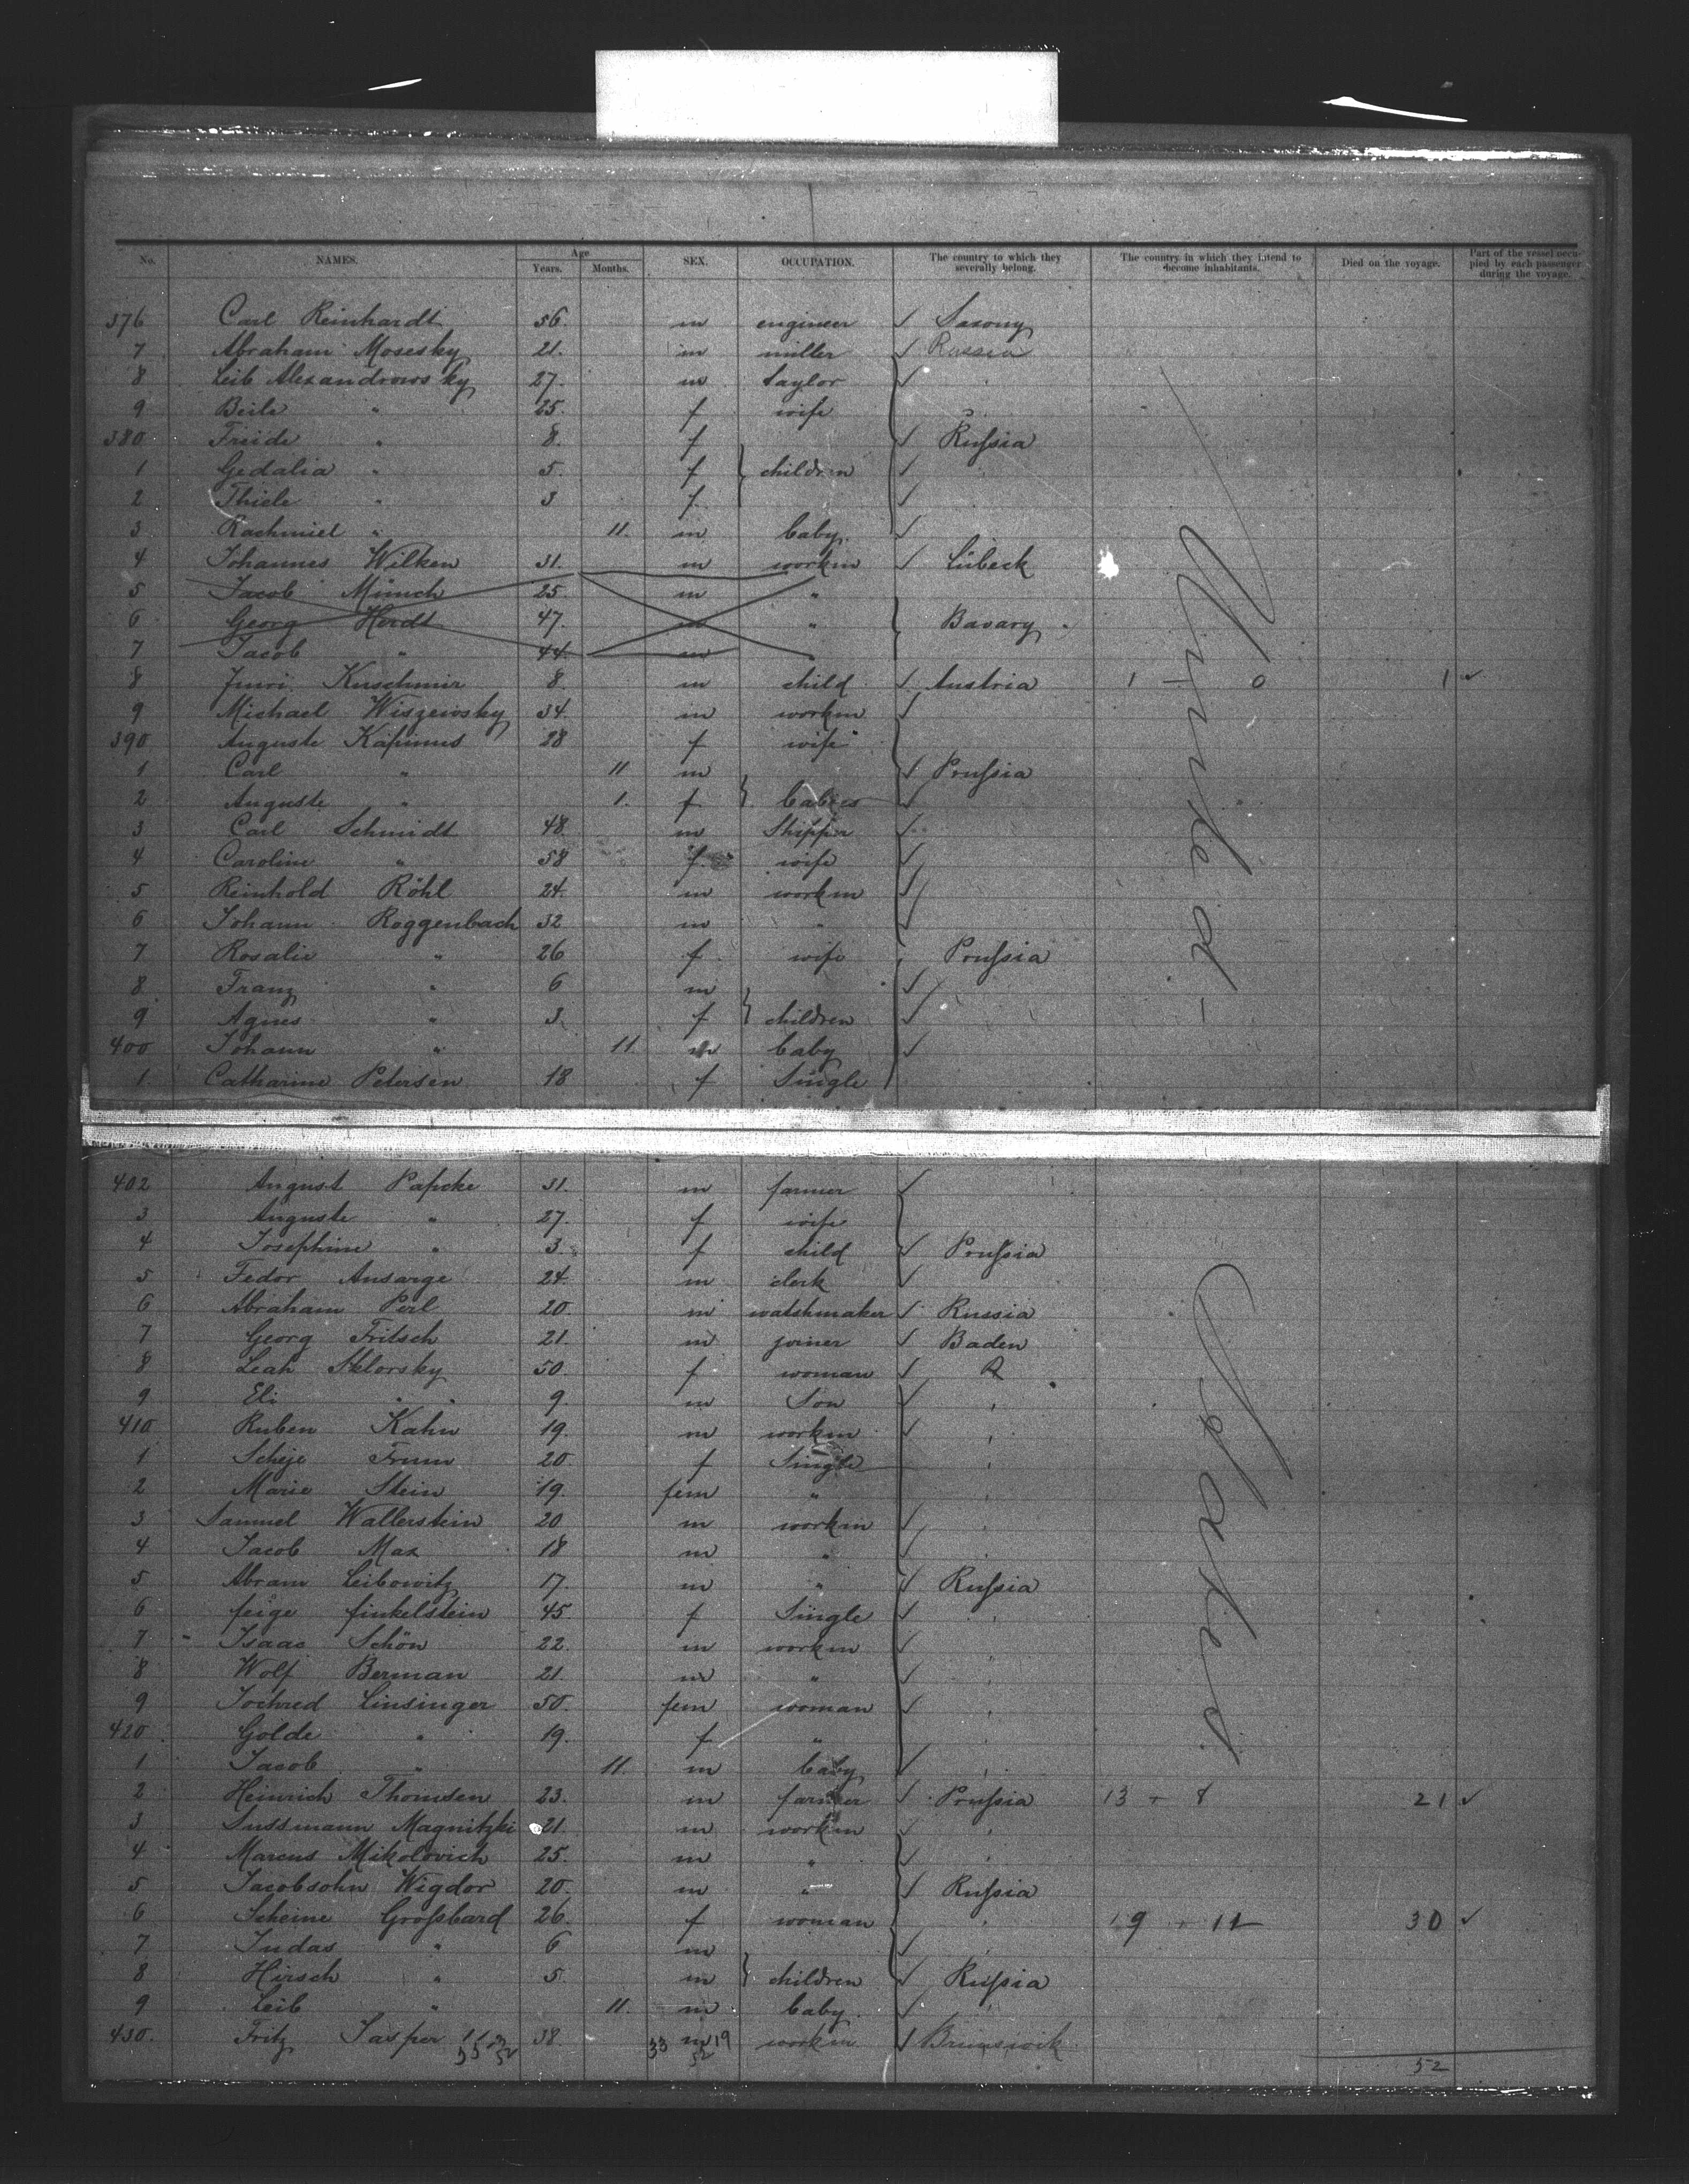 No. NAMES. Age Years. Months. SEX. OCCUPATION. The country to which they severally belong. The country in which they intend to become inhabitants. Died on the voyage. Part of the vessel occupied by each passenger during the voyage.
376 Carl Reinhardt 56. m engineer √ Saxony
7 Abraham Mosesky 21. m miller √ Russia
8 Leib Alexandrowsky 27. m taylor √ "
9 Beile " 25. f wife
380 Freide " 8. f √ Rußia
1 Gedalia " 5. f } children √
2 Thiele " 3 f √
3 Rachmiel " 11. m baby. √
4 Johannes Wilken 31. m workm √ Lübeck
5 Jacob Münch 25 m "
6 Georg Herdt 47. m " } Bavary
7 Jacob " 44. m "
8 Juri Kuschmir 8. m child √ Austria 1 — 0 1 ✓
9 Michael Wiszewsky 34. m workm √
390 Auguste Kapinus 28 f wife
1 Carl " 11 m √ Prußia
2 Auguste " 1. f } babies √
3 Carl Schmidt 48. m Shipper √
4 Caroline " 58 f. wife √
5 Reinhold Röhl 24. m workm √
6 Johann Roggenbach 32 m " √
7 Rosalie " 26 f wife Prußia
8 Franz " 6 m √
9 Agnes " 3. f } children √
400 Johann " 11. m baby √
1 Catharine Petersen 18 f Single
United -
402 August Papcke 31. m farmer √
3 Auguste " 27. f wife
4 Josephine " 3. f child √ Prußia
5 Fedor Ansorge 24. m clerk √
6 Abraham Perl 20. m watshmaker √ Russia
7 Georg Fritsch 21. m joiner √ Baden
8 Leah Sklorsky 50. f woman √ R
9 Eli " 9. m Son √ "
410 Ruben Kahn 19. m workm √ "
1 Scheje Frum 20 f Single "
2 Marie Stein 19. fem " "
3 Samuel Wallerstein 20 m workm √ "
4 Jacob Max 18 m " √
5 Abram Leibowitz 17. m " √ Rußia
6 feige finkelstein 45 f Single √ "
7 Isaac Schön 22. m workm √
8 Wolf Berman 21. m " √ "
9 Jochved Linsinger 50. fem woman √ "
420 Golde " 19. f " "
1 Jacob " 11. m baby √ "
2 Heinrich Thomsen 23. m farmer √ Prußia 13 + 8 21 ✓
3 Sussmann Magnitzki 21. m workm √ "
4 Marcus Mikolovich 25. m " √ "
5 Jacobsohn Wigdor 20. m " √ Rußia
6 Scheine Großbard 26. f woman " 19 + 11 30 ✓
7 Judas " 6 m √
8 Hirsch " 5. m } children √ Rußia
9 Leib " 11. m baby. √ "
430. Fritz Jasper 38. 33 m 19 workm √ Brunswik
52 52
States